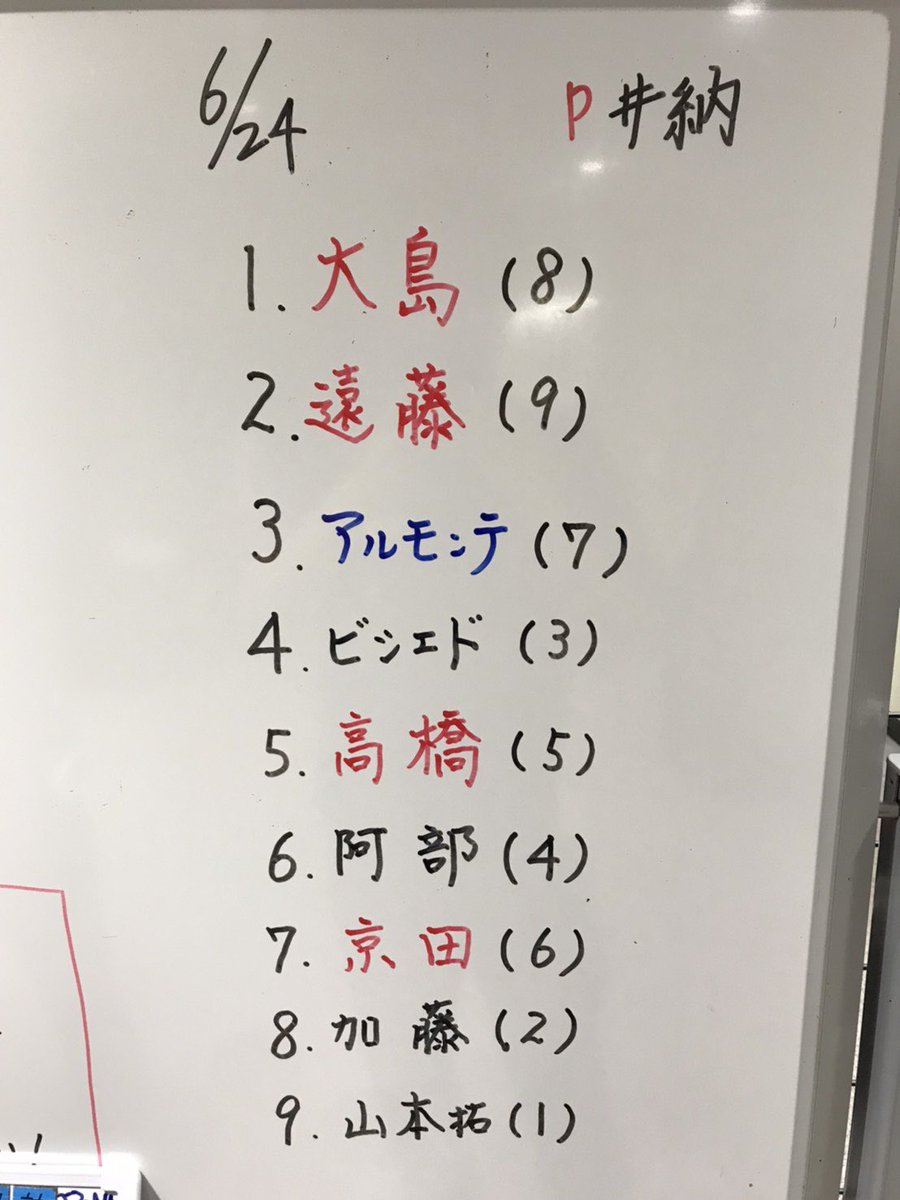 6/24
P 井納
1. 大島 (8)
2. 遠藤 (9)
3. アルモンテ (7)
4. ビシエド (3)
5. 高橋 (5)
6. 阿部 (4)
7. 京田 (6)
8. 加藤 (2)
9. 山本拓 (1)